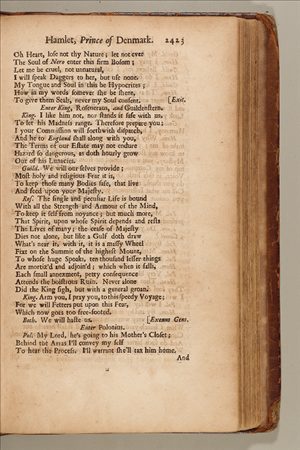 Hamlet, Prince of Denmark. 2423
Oh Heart, lose not thy Nature; let not ever
The Soul of Nero enter this firm Bosom;
Let me be cruel, not unnatural,
I will speak Daggers to her, but use none.
My Tongue and Soul in this be Hypocrites;
How in my words somever she be shent,
To give them Seals, never my Soul consent. [Exit.
Enter King, Rosencraus, and Guildenstern.
King. I like him not, nor stands it safe with us,
To let his Madness range. Therefore prepare you;
I your Commission will forthwith dispatch,
And he to England shall along with you,
The Terms of our Estate may not endure
Hazard so dangerous, as doth hourly grow
Out of his Lunacies.
Guild. We will our selves provide;
Most holy and religious Fear it is,
To keep those many Bodies safe, that live
And feed upon your Majesty.
Ros. The single and peculiar Life is bound
With all the Strength and Armour of the Mind,
To keep it self from noyance; but much more,
That Spirit, upon whose Spirit depends and rests
The Lives of many; the cease of Majesty
Dies not alone, but like a Gulf doth draw
What's near it, with it, it is a massy Wheel
Fixt on the Summit of the highest Mount,
To whose huge Spoaks, ten thousand lesser things
Are mortiz'd and adjoin'd; which when it falls,
Each small annexment, petty consequence
Attends the boistrous Ruin. Never alone
Did the King sigh, but with a general groan.
King. Arm you, I pray you, to this speedy Voyage;
For we will Fetters put upon this Fear,
Which now goes too free-footed.
Both. We will haste us. [Exeunt Gent.
Enter Polonius.
Pol. My Lord, he's going to his Mother's Closet;
Behind the Arras I'll convey my self
To hear the Process. I'll warrant she'll tax him home.
And